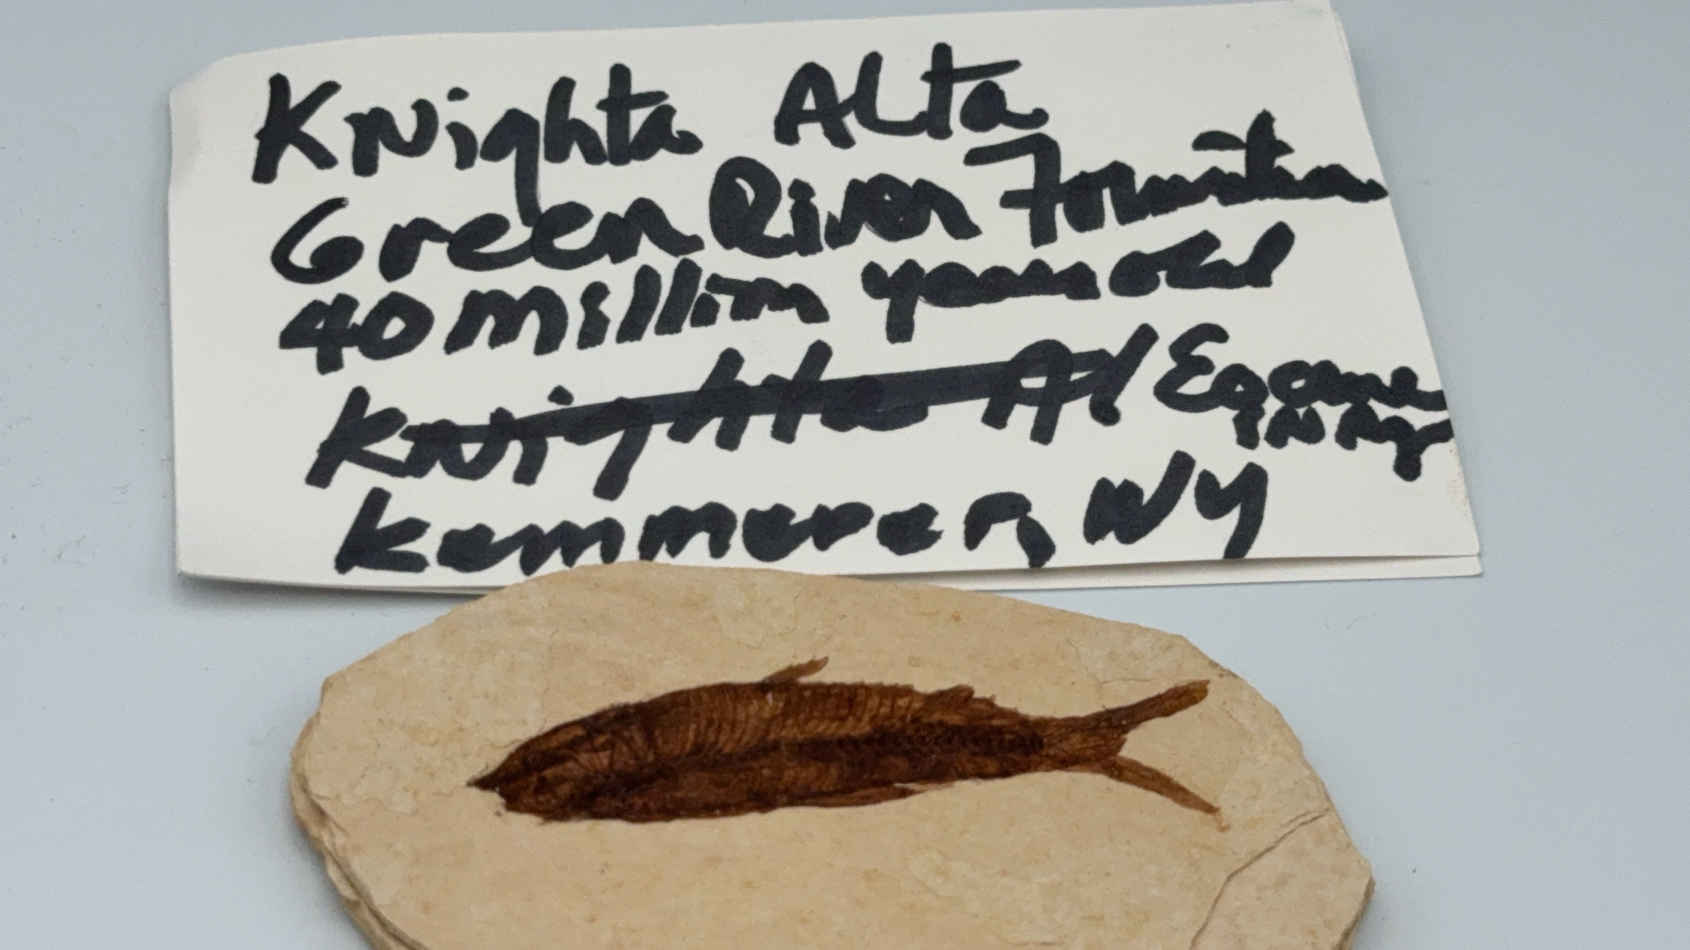 Knighta Alta
Green River Formation
40 million years old
Knighta Al Eocene
Kemmerer, WY